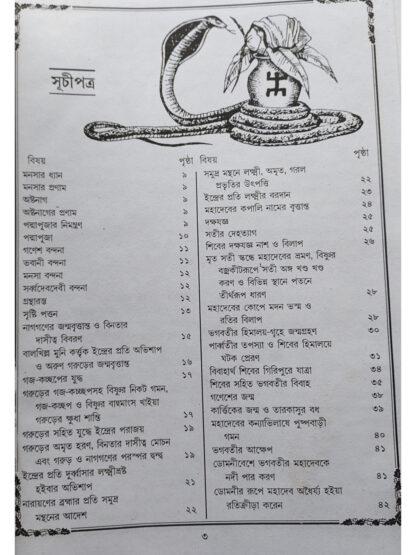 সূচীপত্র
বিষয় পৃষ্ঠা
মনসার ধ্যান ৯
মনসার প্রণাম ৯
অষ্টনাগ ৯
অষ্টনাগের প্রণাম ৯
পদ্মাপূজার নিমন্ত্রণ ৯
পদ্মাপূজা ১০
গণেশ বন্দনা ১১
ভবানী বন্দনা ১১
মনসা বন্দনা ১২
সর্ব্বদেবদেবী বন্দনা ১২
গ্রন্থারম্ভ ১২
সৃষ্টি পত্তন ১৩
নাগগণের জন্মবৃত্তান্ত ও বিনতার
দাসীত্ব বিবরণ ১৫
বালখিল্য মুনি কর্ত্তৃক ইন্দ্রের প্রতি অভিশাপ
ও অরুণ গরুড়ের জন্মবৃত্তান্ত ১৬
গজ-কচ্ছপের যুদ্ধ ১৭
গরুড়ের গজ-কচ্ছপসহ বিষ্ণুর নিকট গমন,
গজ-কচ্ছপ ও বিষ্ণুর বাহুমাংস খাইয়া
গরুড়ের ক্ষুধা শান্তি ১৭
গরুড়ের সহিত যুদ্ধে ইন্দ্রের পরাজয় ১৯
গরুড়ের অমৃত হরণ, বিনতার দাসীত্ব মোচন
এবং গরুড় ও নাগগণের পরস্পর দ্বন্দ্ব ১৯
ইন্দ্রের প্রতি দুর্ব্বাসার লক্ষ্মীভ্রষ্ট
হইবার অভিশাপ ২১
নারায়ণের ব্রহ্মার প্রতি সমুদ্র
মন্থনের আদেশ ২২
বিষয় পৃষ্ঠা
সমুদ্র মন্থনে লক্ষ্মী, অমৃত, গরল
প্রভৃতির উৎপত্তি ২২
ইন্দ্রের প্রতি লক্ষ্মীর বরদান ২৩
মহাদেবের কপালি নামের বৃত্তান্ত ২৪
দক্ষযজ্ঞ ২৫
সতীর দেহত্যাগ ২৫
শিবের দক্ষযজ্ঞ নাশ ও বিলাপ ২৬
মৃত সতী স্কন্ধে মহাদেবের ভ্রমণ, বিষ্ণুর
বজ্রকীটরূপে সতী অঙ্গ খণ্ড খণ্ড
করণ ও বিভিন্ন স্থানে পতনে
তীর্থরূপ ধারণ ২৮
মহাদেবের কোপে মদন ভস্ম ও
রতির বিলাপ ২৮
ভগবতীর হিমালয়-গৃহে জন্মগ্রহণ ৩০
পার্ব্বতীর তপস্যা ও শিবের হিমালয়ে
ঘটক প্রেরণ ৩১
বিবাহার্থ শিবের গিরিপুরে যাত্রা ৩৪
শিবের সহিত ভগবতীর বিবাহ ৩৫
গণেশের জন্ম ৩৮
কার্ত্তিকের জন্ম ও তারকাসুর বধ ৩৯
মহাদেবের কন্যাভিলাষে পুষ্পবাড়ী
গমন ৪০
ভগবতীর আক্ষেপ ৪১
ডোমনীবেশে ভগবতীর মহাদেবকে
নদী পার করণ ৪১
ডোমনীর রূপে মহাদেব অধৈর্য্য হইয়া
রতিক্রীড়া করেন ৪২
৩